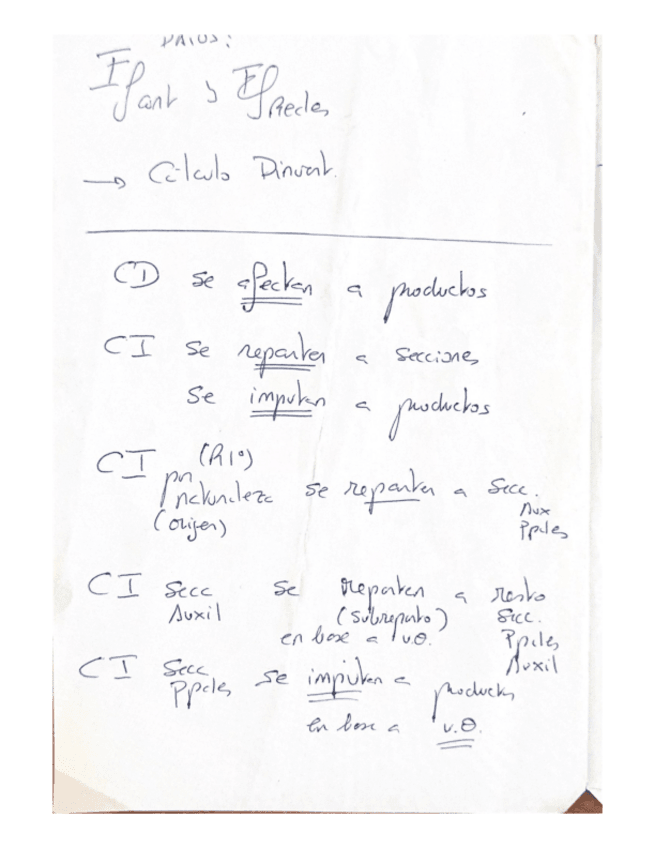 DATOS:
If ant y Ef Reales
→ Cálculo Dinvent.
CD se afectan a productos
CI se reparten a secciones
Se imputan a productos
CI (R1º) se reparten a Secc.
por naturaleza Aux
(origen) Ppales
CI Secc se reparten a resto
Auxil (subreparto) Secc.
en base a u.o. Ppales
Auxil
CI Secc se imputan a productos
Ppales
en base a u.o.